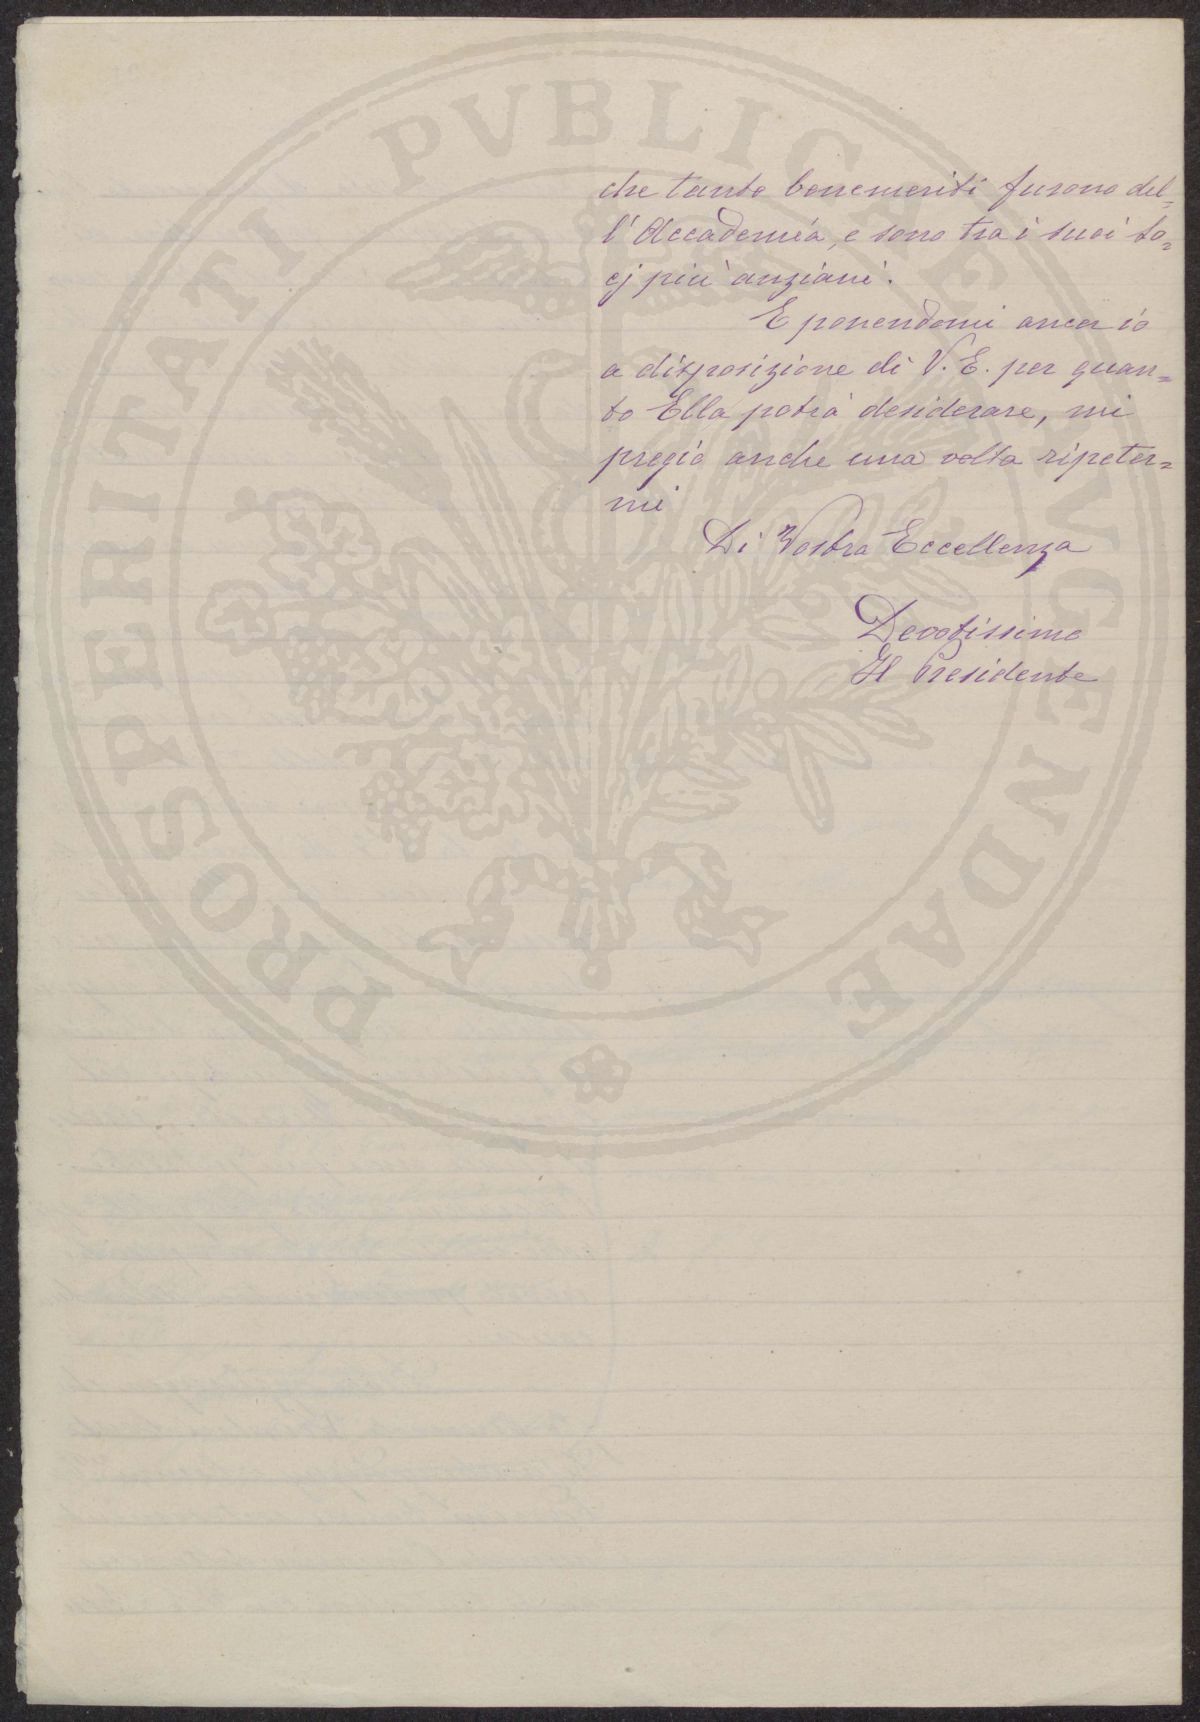 che tanto benemeriti furono del=
l'Accademia, e sono tra i suoi so=
cj più anziani.
E ponendomi ancor io
a disposizione di V. E. per quan=
to Ella potrà desiderare, mi
pregio anche una volta ripeter=
mi
Di Vostra Eccellenza
Devotissimo
Il Presidente
PROSPERITATI PVBLICAE AVGENDAE